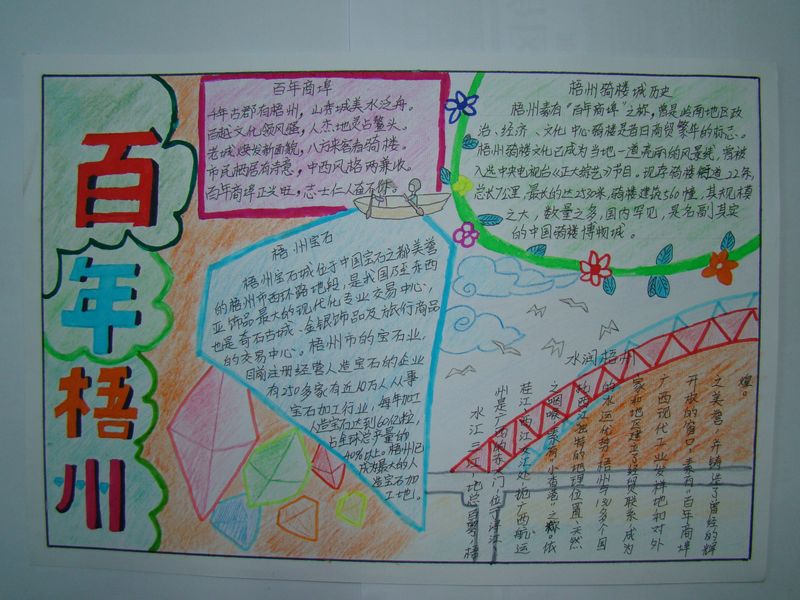 百年梧州
百年商埠
千年古郡有梧州，山秀城美水泛舟。
百越文化领风骚，人杰地灵占鳌头。
老城焕发新面貌，八方来客看骑楼。
市民栖居有诗意，中西风格两兼收。
百年商埠正兴旺，志士仁人奋不休。
梧州骑楼城历史
梧州素有“百年商埠”之称，曾是岭南地区政
治、经济、文化中心骑楼是昔日商贸繁华的标志。
梧州骑楼文化已成为当地一道亮丽的风景线，曾被
入选中央电视台《正大综艺》节目。现存骑楼街道22条，
总长7公里，最长的达2530米，骑楼建筑560幢，其规模
之大，数量之多，国内罕见，是名副其实
的中国骑楼博物城。
梧州宝石
梧州宝石城位于中国宝石之都美誉
的梧州市西环路地段，是我国乃至东西
亚饰品最大的现代化专业交易中心，
也是奇石古城、金银饰品及旅行商品
的交易中心。梧州市的宝石业，
目前注册经营人造宝石的企业
有250多家有近10万人从事
宝石加工行业，每年加工
人造宝石达到60亿粒，
占全球总产量的
40%以上。梧州已
成为最大的人
造宝石加
工地。
水润梧州
水江三江 地总百粤，梧
州是广西的东大门位于浔江
桂江西江交汇处扼广西航运
之咽喉素有“小香港”之称。依
托西江独特的地理位置、天然
的水运优势梧州与130多个国
家和地区建立了经贸联系成为
广西现代工业发祥地和对外
开放的窗口 素有“百年商埠
之美誉，并铸造了曾经的辉
煌。